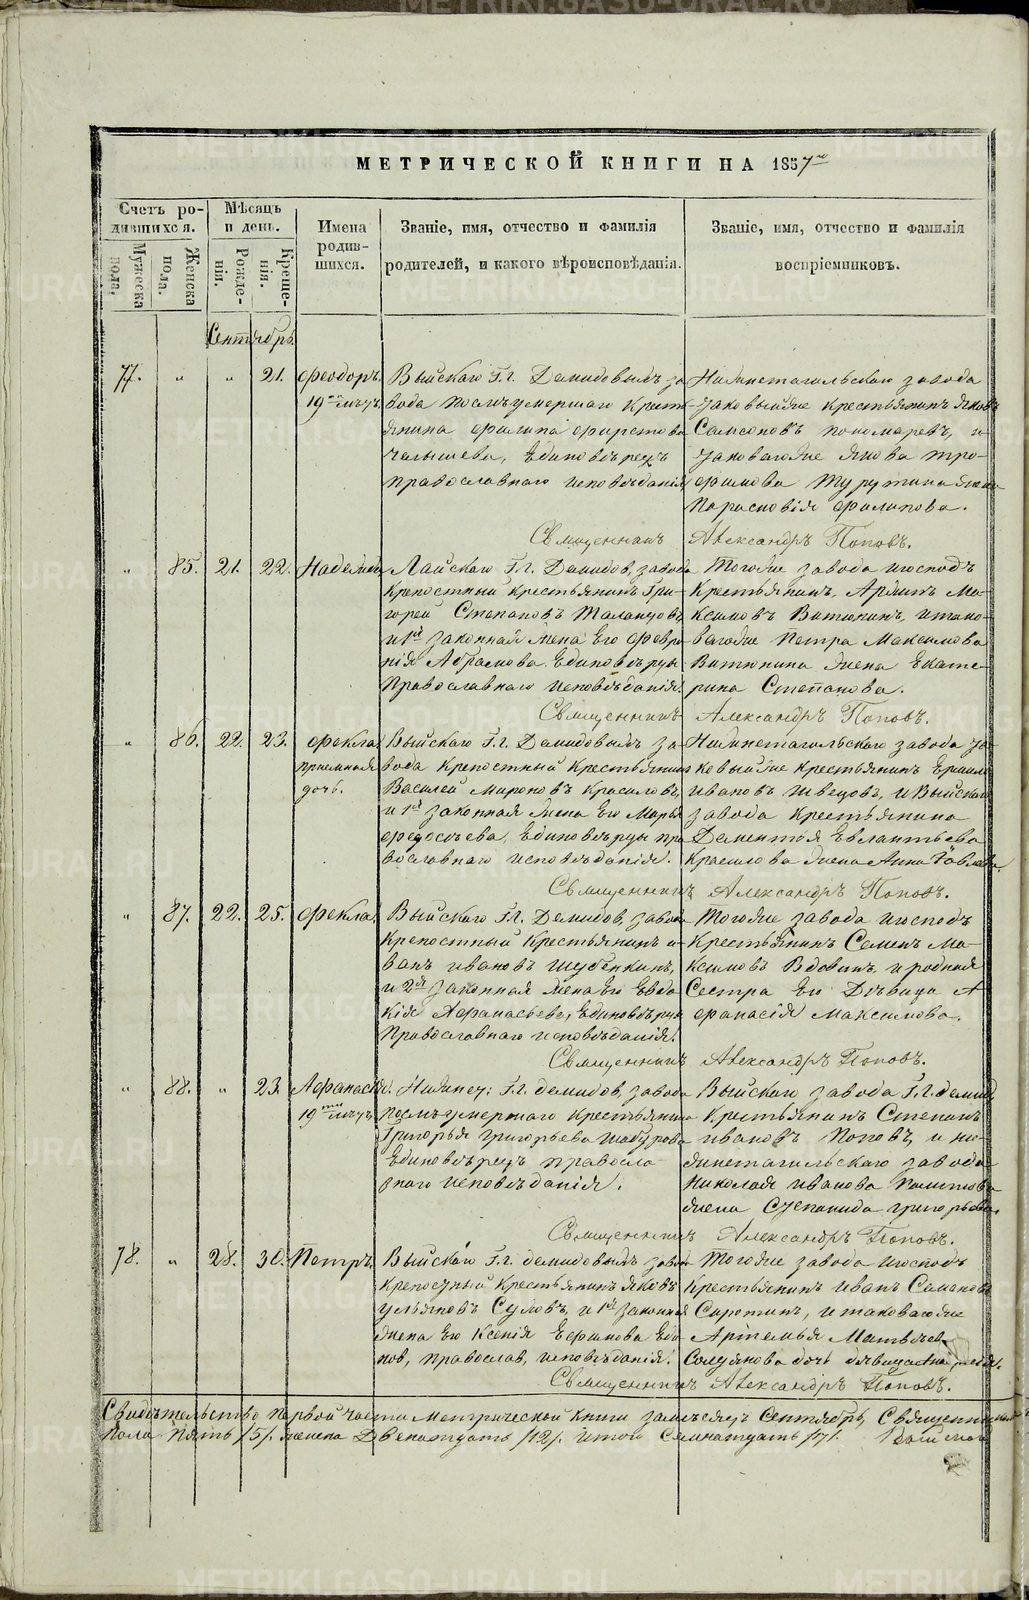 МЕТРИЧЕСКОЙ КНИГИ НА 1857 го
Счетъ ро-
дившихся.
Мужеска пола.
Женска пола.
Мѣсяцъ
и день.
Рожде-
нія.
Креще-
нія.
Имена
родив-
шихся.
Званіе, имя, отчество и фамилія
родителей, и какого вѣроисповѣданія.
Званіе, имя, отчество и фамилія
воспріемниковъ.
Сентябрь
77. " " 21. Феодоръ
Выйскаго Г.г. Демидовымъ за
вода послѣ умершаго Крестъ
янина Филипа Фирстова
Чалышева, Единовѣрецъ
православнаго исповѣданія
Нижнетагильскаго завода
таковыйже крестьянинъ Яковъ
Самсоновъ Пономаревъ, и
таковагоже Якова Тро-
фимова Турутина жена
Парасковія Филипова.
Священникъ Александръ Поповъ.
" 85. 21. 22. Надежда
Лайскаго Г.г. Демидов, завода
Крепостный крестьянинъ Гри-
горей Степановъ Таланцовъ
и 1я законная жена его Февро
нія Абрамова Единовѣрцы
Православнаго исповѣданія.
Тогоже завода и господъ
Крестьянинъ, Ма-
ксимовъ Витюнинъ, и тако-
вагоже Петра Максимова
Витюнина жена Екате-
рина Степанова.
Священникъ Александръ Поповъ.
" 86. 22. 23. Фекла
приемная
дочь.
Выйскаго Г.г. Демидовымъ за-
вода Крепостный Крестьянинъ
Василей Мироновъ Красиловъ
и 1я законная жена его Марья
Федосѣева, Единовѣрцы пра
вославнаго исповѣданія.
Нижнетагильскаго завода та-
ковыйже крестьянинъ Ермилъ
Ивановъ Швецовъ, и Выйскаго
завода Крестьянина
Дементья Евлантьева
Красилова жена Анна Павлова.
Священникъ Александръ Поповъ.
" 87. 22. 25. Фекла.
Выйскаго Г.г. Демидов, завода
Крепостный Крестьянинъ И-
ванъ Ивановъ Шубенкинъ,
и 2я Законная жена Его Евдо
кія Афанасьева, Единовѣрцы
Православнаго исповѣданія.
Тогоже завода и господъ
Крестьянинъ Семенъ Ма-
ксимовъ Вдовинъ и родная
Сестра его Дѣвица А-
фанасія Максимова.
Священникъ Александръ Поповъ.
" 88. " 23. Афанасія.
Нижнет: Г.г. демидов, завода
послѣ умершаго Крестьянина
Григорья Григорьева Шабурова
Единовѣрецъ правосла-
внаго исповѣданія.
Выйскаго завода Г.г. демид
Крестьянинъ Степанъ
Ивановъ Поповъ, и ни-
жнетагильскаго завода
Николая Иванова
жена Степанида Григорьева.
Священникъ Александръ Поповъ.
78. " 28. 30. Петръ.
Выйскаго Г.г. демидовымъ завод
Крепостный Крестьянинъ Яковъ
Ульяновъ Суловъ, и 1я законная
жена Его Ксенія Ефимова Еди
нов, православ, исповѣданія.
Тогоже завода и господъ
Крестьянинъ Иванъ Самсоновъ
Сиротинъ, и таковагоже
Артемья Матвѣева
Солдянова дочь дѣвица
Священникъ Александръ Поповъ.
Свидѣтельство первой части Метрической книги за мѣсяцъ Сентябрь Священникъ
пола пять /5/ женска Двенатцать /12/. Итого Семнатцать /17/.